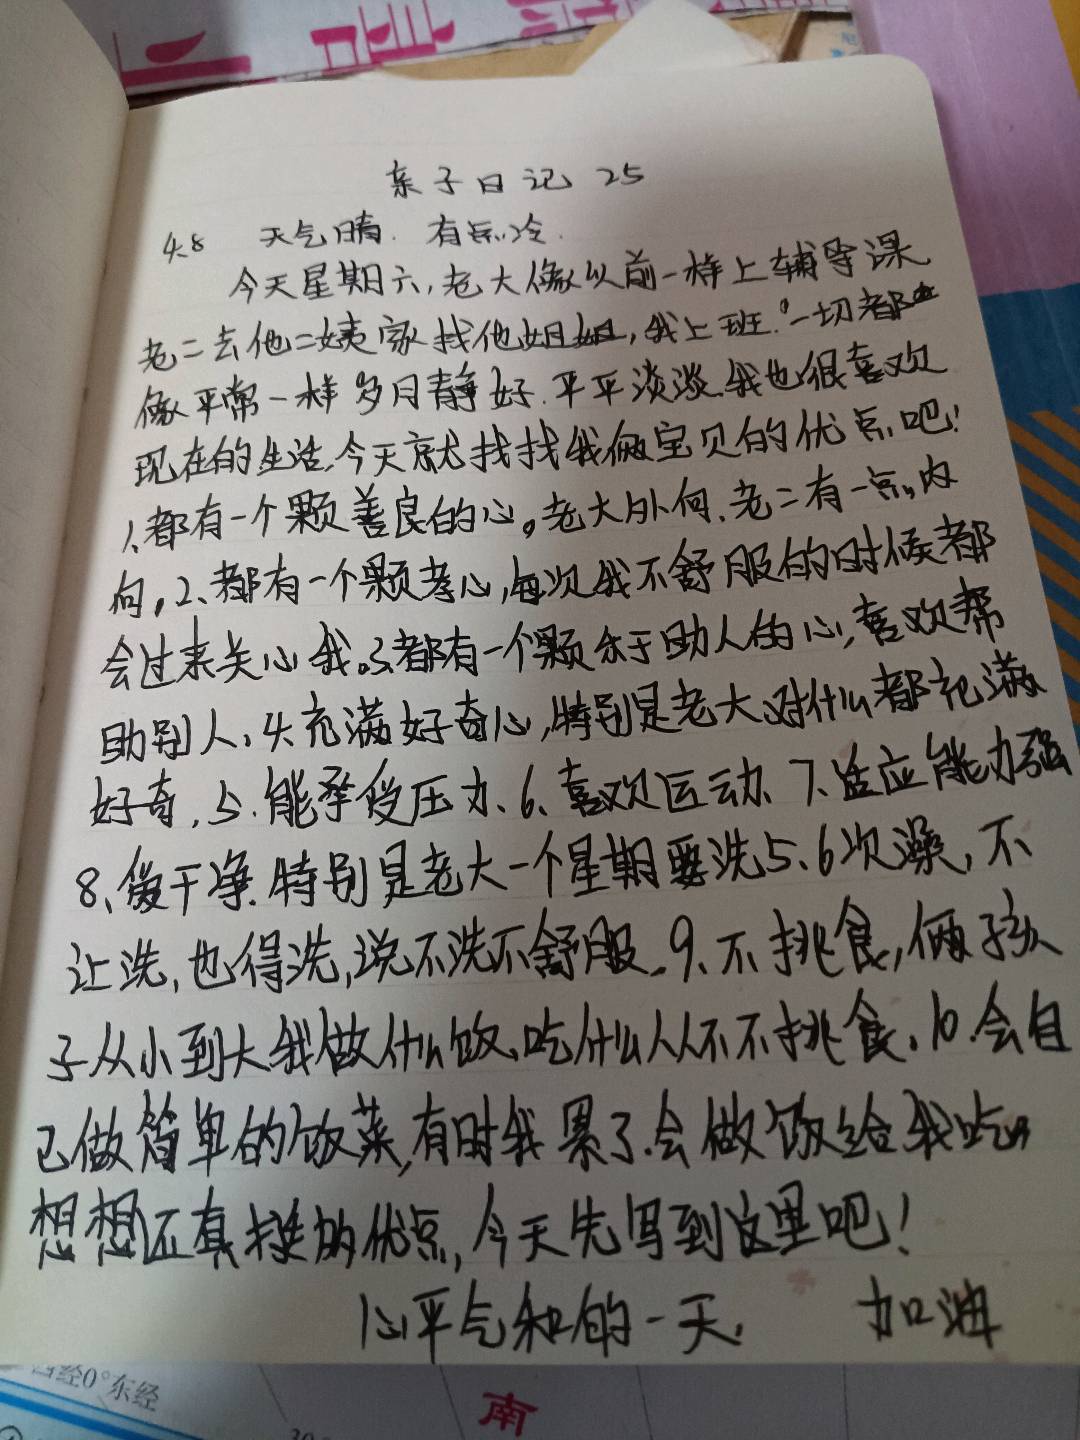 亲子日记 25
4.8 天气晴. 有点冷.
今天星期六,老大像以前一样上辅导课
老二去他二姨家找他姐姐,我上班.一切都
像平常一样岁月静好.平平淡淡.我也很喜欢
现在的生活,今天就找找我俩宝贝的优点吧!
1、都有一个颗善良的心。老大外向.老二有一点内
向。2、都有一个颗孝心,每次我不舒服的时候都
会过来关心我。3.都有一个颗乐于助人的心,喜欢帮
助别人、4.充满好奇心,特别是老大对什么都充满
好奇.5.能承受压力、6、喜欢运动、7、适应能力强
8、爱干净.特别是老大一个星期要洗5、6次澡,不
让洗,也得洗,说不洗不舒服.9、不挑食,俩孩
子从小到大我做什么饭、吃什么从不不挑食.10.会自
己做简单的饭菜,有时我累了.会做饭给我吃。
想想还真挺的优点,今天先写到这里吧!
心平气和的一天. 加油
西经0°东经
南